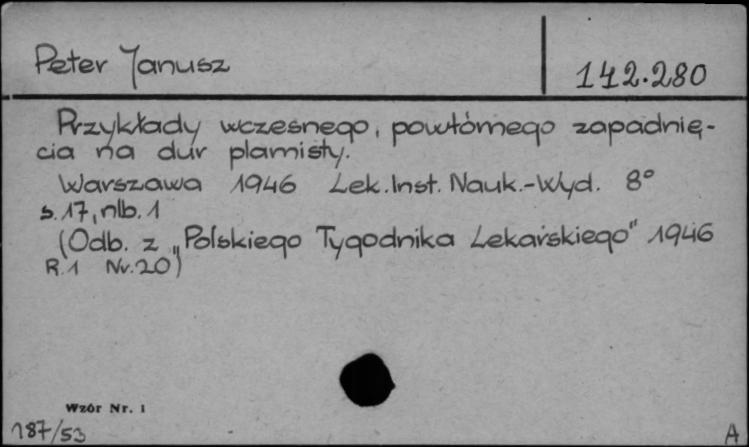 Peter Janusz
142.280
Przykłady wczesnego, powtórnego zapadnię-
cia na dur plamisty.
Warszawa 1946 Lek. Inst. Nauk.-Wyd. 8°
s. 17, nlb. 1
(Odb. z „Polskiego Tygodnika Lekarskiego" 1946
R. 1 Nr. 20)
Wzór Nr. 1
187/53
A